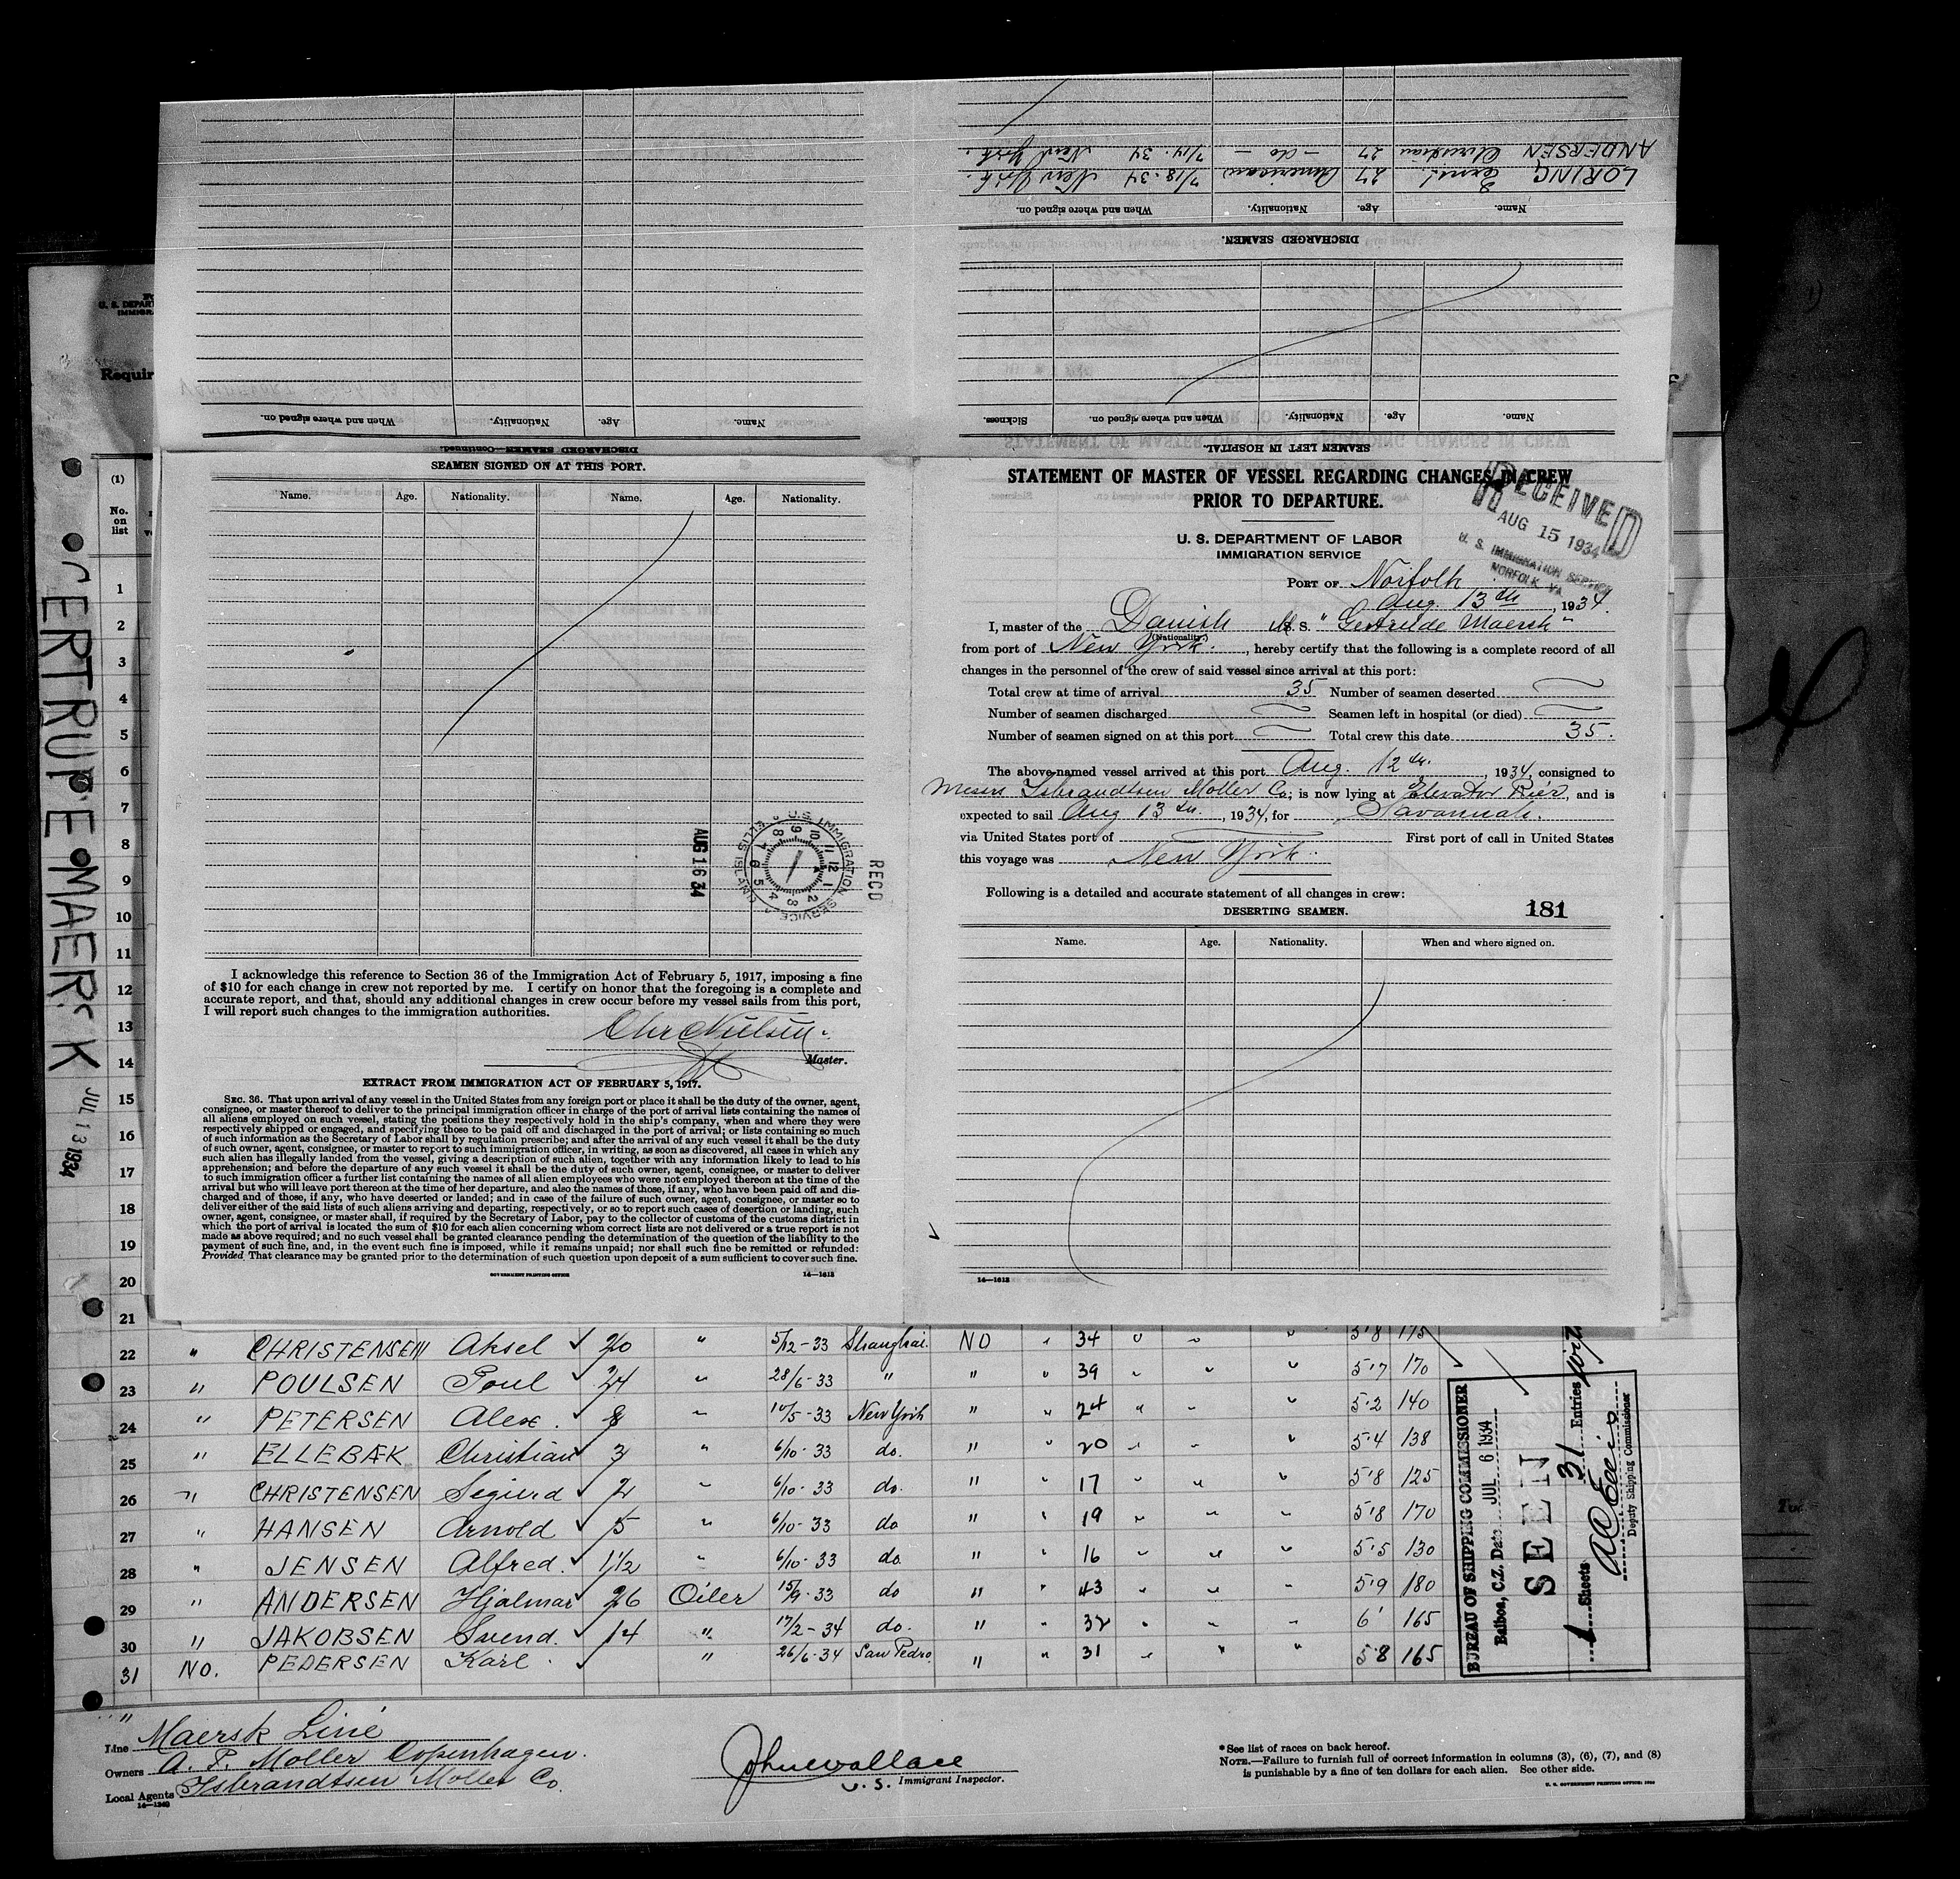 ANDERSEN Christian 27 - do - 7/14. 34 New York.
LORING Ernst. 27 American 7/18. 34 New York.
Name. Age. Nationality. When and where signed on.
DISCHARGED SEAMEN.
Name. Age. Nationality. When and where signed on.
DISCHARGED SEAMEN—Continued.
Name. Age. Nationality. When and where signed on. Sickness.
SEAMEN LEFT IN HOSPITAL.
U. S. DEPART
IMMIGRA
Requir
(1)
No. on list
GERTRUDE MAERSK
JUL 13 1934
SEAMEN SIGNED ON AT THIS PORT.
Name. Age. Nationality. Name. Age. Nationality.
U.S. IMMIGRATION SERVICE ELLIS ISLAND
AUG 16 34
RECD
I acknowledge this reference to Section 36 of the Immigration Act of February 5, 1917, imposing a fine
of $10 for each change in crew not reported by me. I certify on honor that the foregoing is a complete and
accurate report, and that, should any additional changes in crew occur before my vessel sails from this port,
I will report such changes to the immigration authorities.
Chr Nielsen.
Master.
EXTRACT FROM IMMIGRATION ACT OF FEBRUARY 5, 1917.
SEC. 36. That upon arrival of any vessel in the United States from any foreign port or place it shall be the duty of the owner, agent,
consignee, or master thereof to deliver to the principal immigration officer in charge of the port of arrival lists containing the names of
all aliens employed on such vessel, stating the positions they respectively hold in the ship's company, when and where they were
respectively shipped or engaged, and specifying those to be paid off and discharged in the port of arrival; or lists containing so much
of such information as the Secretary of Labor shall by regulation prescribe; and after the arrival of any such vessel it shall be the duty
of such owner, agent, consignee, or master to report to such immigration officer, in writing, as soon as discovered, all cases in which any
such alien has illegally landed from the vessel, giving a description of such alien, together with any information likely to lead to his
apprehension; and before the departure of any such vessel it shall be the duty of such owner, agent, consignee, or master to deliver
to such immigration officer a further list containing the names of all alien employees who were not employed thereon at the time of the
arrival but who will leave port thereon at the time of her departure, and also the names of those, if any, who have been paid off and dis-
charged and of those, if any, who have deserted or landed; and in case of the failure of such owner, agent, consignee, or master so to
deliver either of the said lists of such aliens arriving and departing, respectively, or so to report such cases of desertion or landing, such
owner, agent, consignee, or master shall, if required by the Secretary of Labor, pay to the collector of customs of the customs district in
which the port of arrival is located the sum of $10 for each alien concerning whom correct lists are not delivered or a true report is not
made as above required; and no such vessel shall be granted clearance pending the determination of the question of the liability to the
payment of such fine, and, in the event such fine is imposed, while it remains unpaid; nor shall such fine be remitted or refunded:
Provided, That clearance may be granted prior to the determination of such question upon deposit of a sum sufficient to cover such fine.
GOVERNMENT PRINTING OFFICE 14—1618
STATEMENT OF MASTER OF VESSEL REGARDING CHANGES IN CREW
PRIOR TO DEPARTURE.
RECEIVED
AUG 15 1934
U. S. IMMIGRATION SERVICE
NORFOLK VA
U. S. DEPARTMENT OF LABOR
IMMIGRATION SERVICE
PORT OF Norfolk
Aug. 13th, 1934.
I, master of the Danish M.S. "Gertrude Maersk"
(Nationality)
from port of New York., hereby certify that the following is a complete record of all
changes in the personnel of the crew of said vessel since arrival at this port:
Total crew at time of arrival 35 Number of seamen deserted
Number of seamen discharged Seamen left in hospital (or died)
Number of seamen signed on at this port Total crew this date 35.
The above-named vessel arrived at this port Aug. 12th., 1934, consigned to
Messrs Isbrandtsen Moller Co; is now lying at Elevator Pier, and is
expected to sail Aug 13th., 1934, for Savannah.
via United States port of First port of call in United States
this voyage was New York.
Following is a detailed and accurate statement of all changes in crew:
DESERTING SEAMEN. 181
Name. Age. Nationality. When and where signed on.
14—1618
1
2
3
4
5
6
7
8
9
10
11
12
13
14
15
16
17
18
19
20
21
22 " CHRISTENSEN Aksel 20 " 5/12-33 Shanghai. NO " 34 " " " 5'8 175
23 " POULSEN Poul 24 " 28/6-33 " " " 39 " " " 5'7 170
24 " PETERSEN Alex. 8 " 10/5-33 New York " " 24 " " " 5'2 140
25 " ELLEBÆK Christian 3 " 6/10-33 do. " " 20 " " " 5'4 138
26 " CHRISTENSEN Sigurd 2 " 6/10-33 do. " " 17 " " " 5'8 125
27 " HANSEN Arnold 5 " 6/10-33 do " " 19 " " " 5'8 170
28 " JENSEN Alfred. 1 1/2 " 6/10-33 do. " " 16 " " " 5'5 130
29 " ANDERSEN Hjalmar 26 Oiler 15/9-33 do " " 43 " " " 5'9 180
30 " JAKOBSEN Svend. 14 " 17/2-34 do. " " 32 " " " 6' 165
31 NO. PEDERSEN Karl. " 26/6-34 San Pedro. " " 31 " " " 5'8 165
BUREAU OF SHIPPING COMMISSIONER
Balboa, C.Z. Date JUL 6 1934
SEEN
1 Sheets 31 Entries
Deputy Shipping Commissioner
Line Maersk Line
Owners A. P. Moller Copenhagen.
Local Agents Isbrandtsen Moller Co.
14—1240
John Wallace
U. S. Immigrant Inspector.
*See list of races on back hereof.
NOTE.—Failure to furnish full or correct information in columns (3), (6), (7), and (8)
is punishable by a fine of ten dollars for each alien. See other side.
U. S. GOVERNMENT PRINTING OFFICE